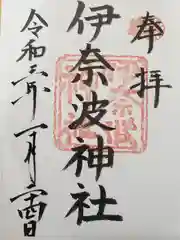 奉拝
伊奈波神社
令和六年一月二十四日